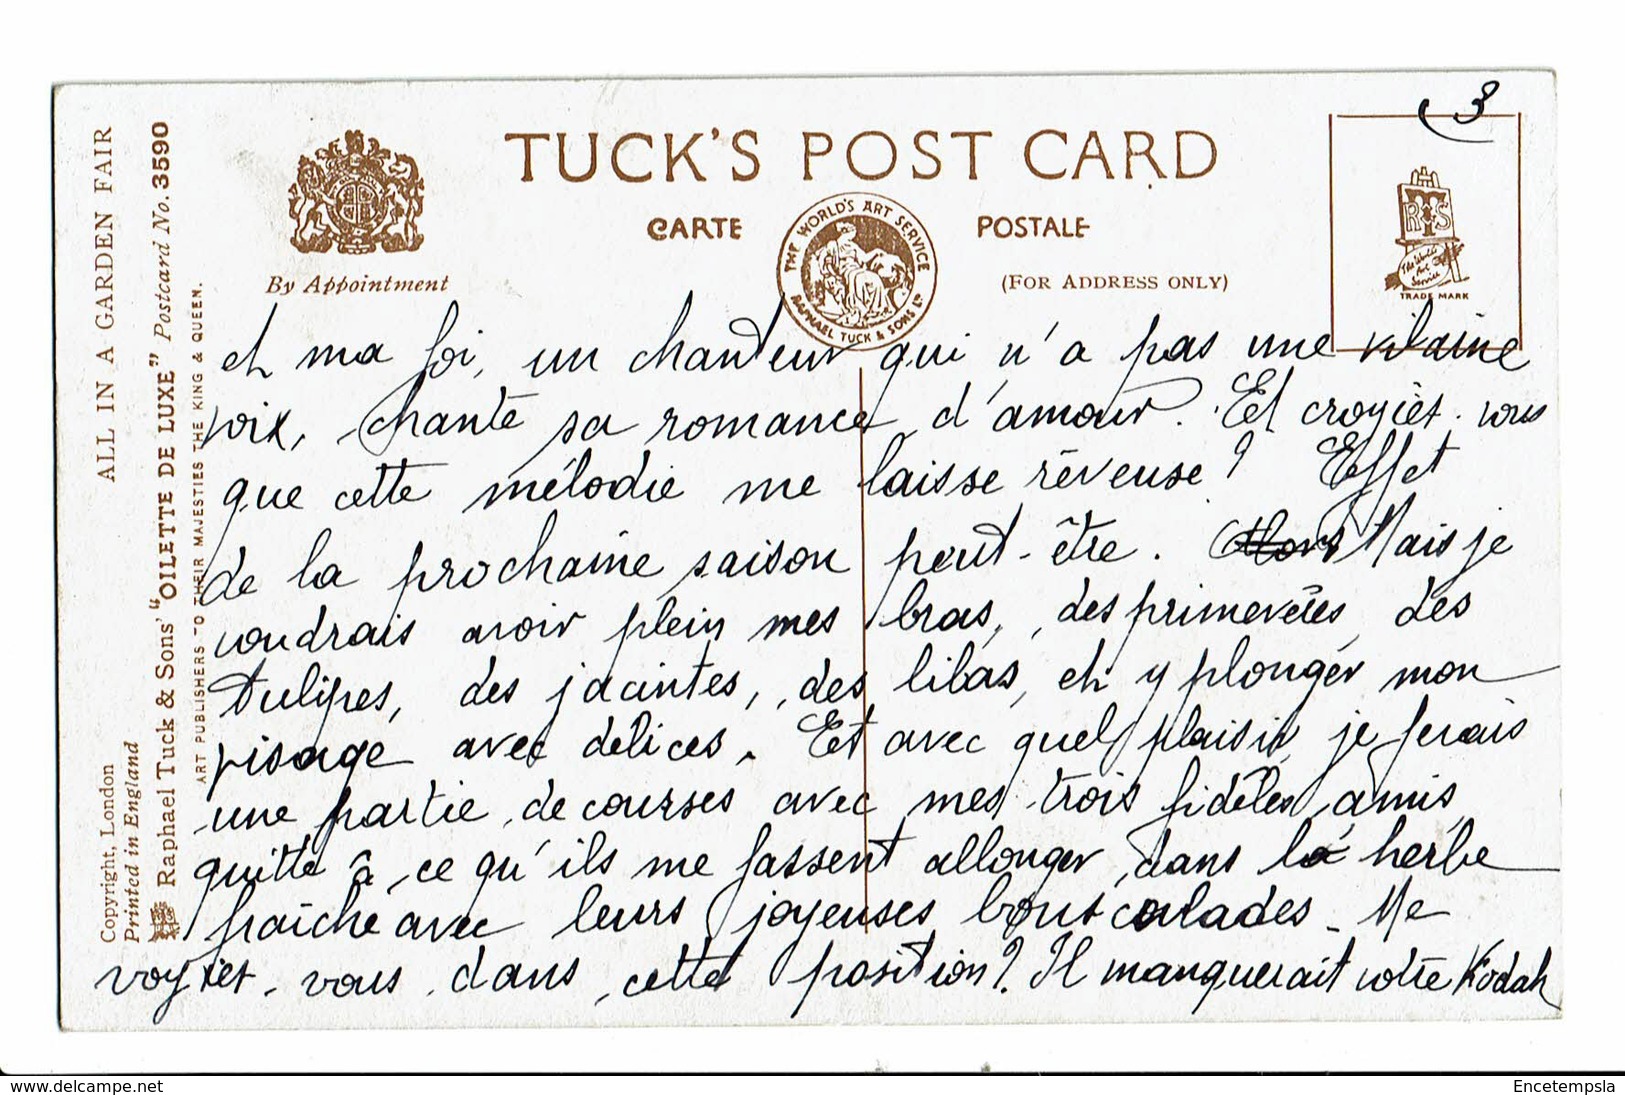 3
TUCK'S POST CARD
CARTE POSTALE
(FOR ADDRESS ONLY)
By Appointment
THE WORLD'S ART SERVICE
RAPHAEL TUCK & SONS LD
RTS
The World's
Art
Service
TRADE MARK
ALL IN A GARDEN FAIR
Copyright, London
Printed in England
Raphael Tuck & Sons' "OILETTE DE LUXE" Postcard No. 3590
ART PUBLISHERS TO THEIR MAJESTIES THE KING & QUEEN.
et ma foi, un chanteur qui n'a pas une vilaine
voix, chante sa romance d'amour. Et croyiez-vous
que cette mélodie me laisse rêveuse? Effet
de la prochaine saison peut-être. Mais je
voudrais avoir plein mes bras, des primevères, des
tulipes, des jacintes, des lilas, et y plonger mon
visage avec délices. Et avec quel plaisir, je ferais
une partie de courses avec mes trois fidèles amis,
quitte à ce qu'ils me fassent allonger dans l'herbe
fraîche avec leurs joyeuses bousculades - Me
voyiez-vous dans cette position? Il manquerait votre Kodak
www.delcampe.net
Encetempsla